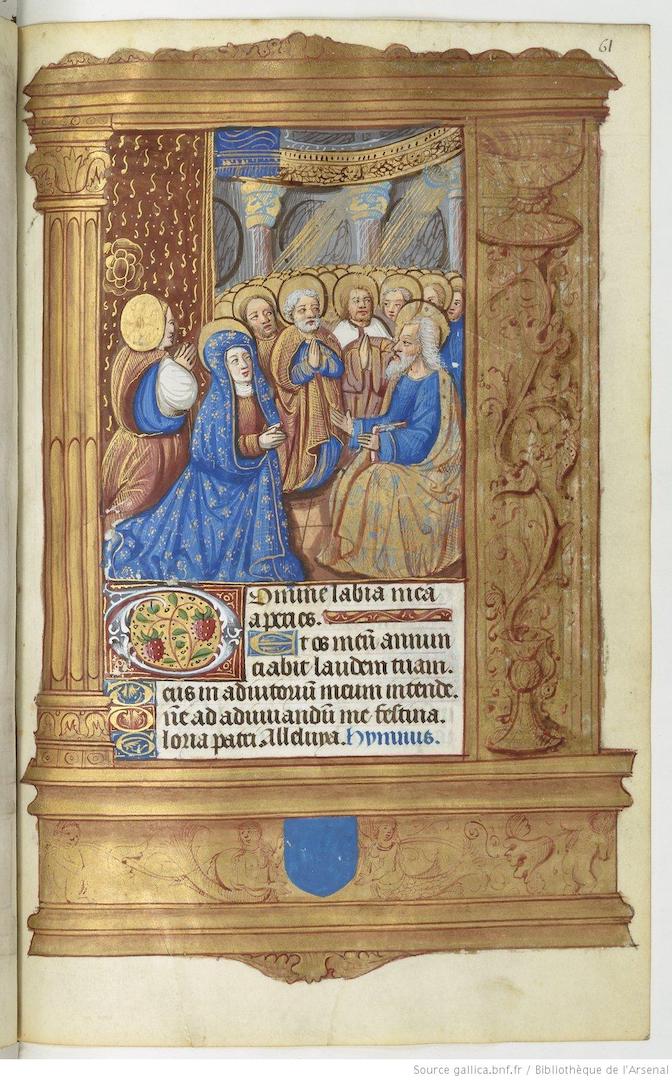 61
Omine labia mea
aperies.
Et os meū annun
ciabit laudem tuam.
eus in adiutoriū meum intende.
ñe ad adiuuandū me festina.
loria patri. Alleluya. Hymnus.
Source gallica.bnf.fr / Bibliothèque de l'Arsenal